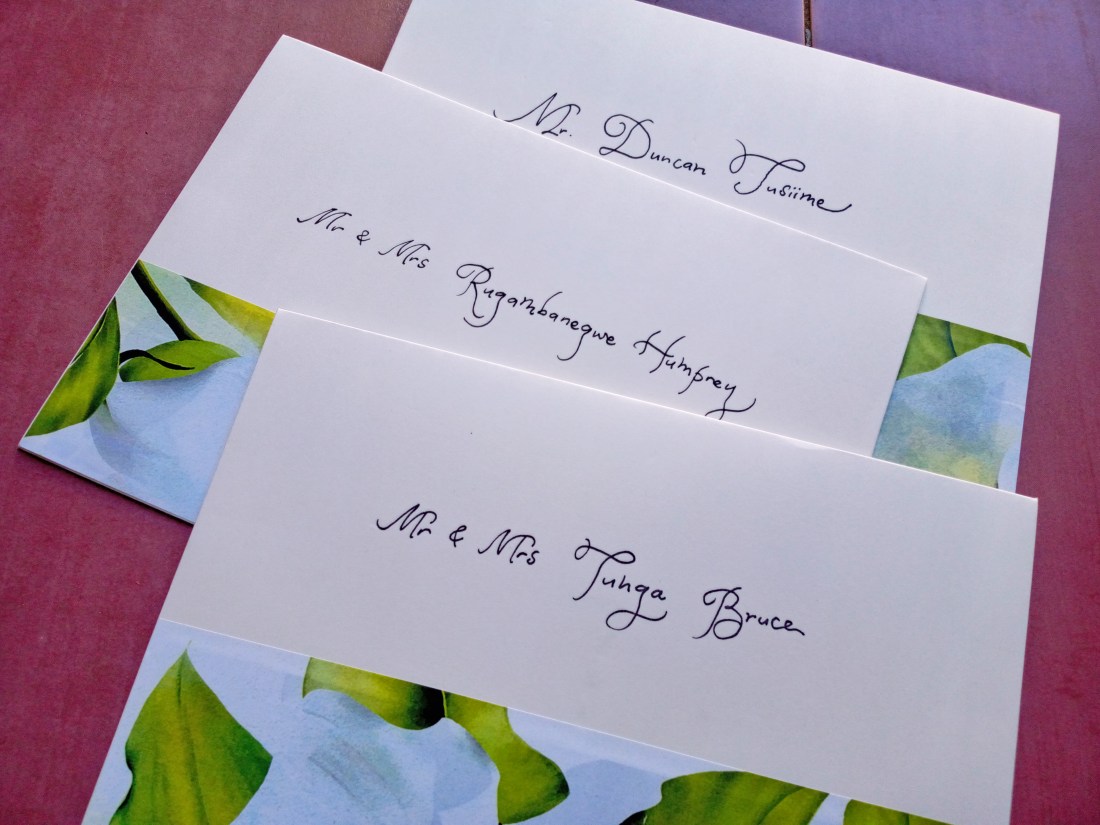 Mr. Duncan Tusiime
Mr & Mrs Rugambanegwe Humprey
Mr & Mrs Tunga Bruce